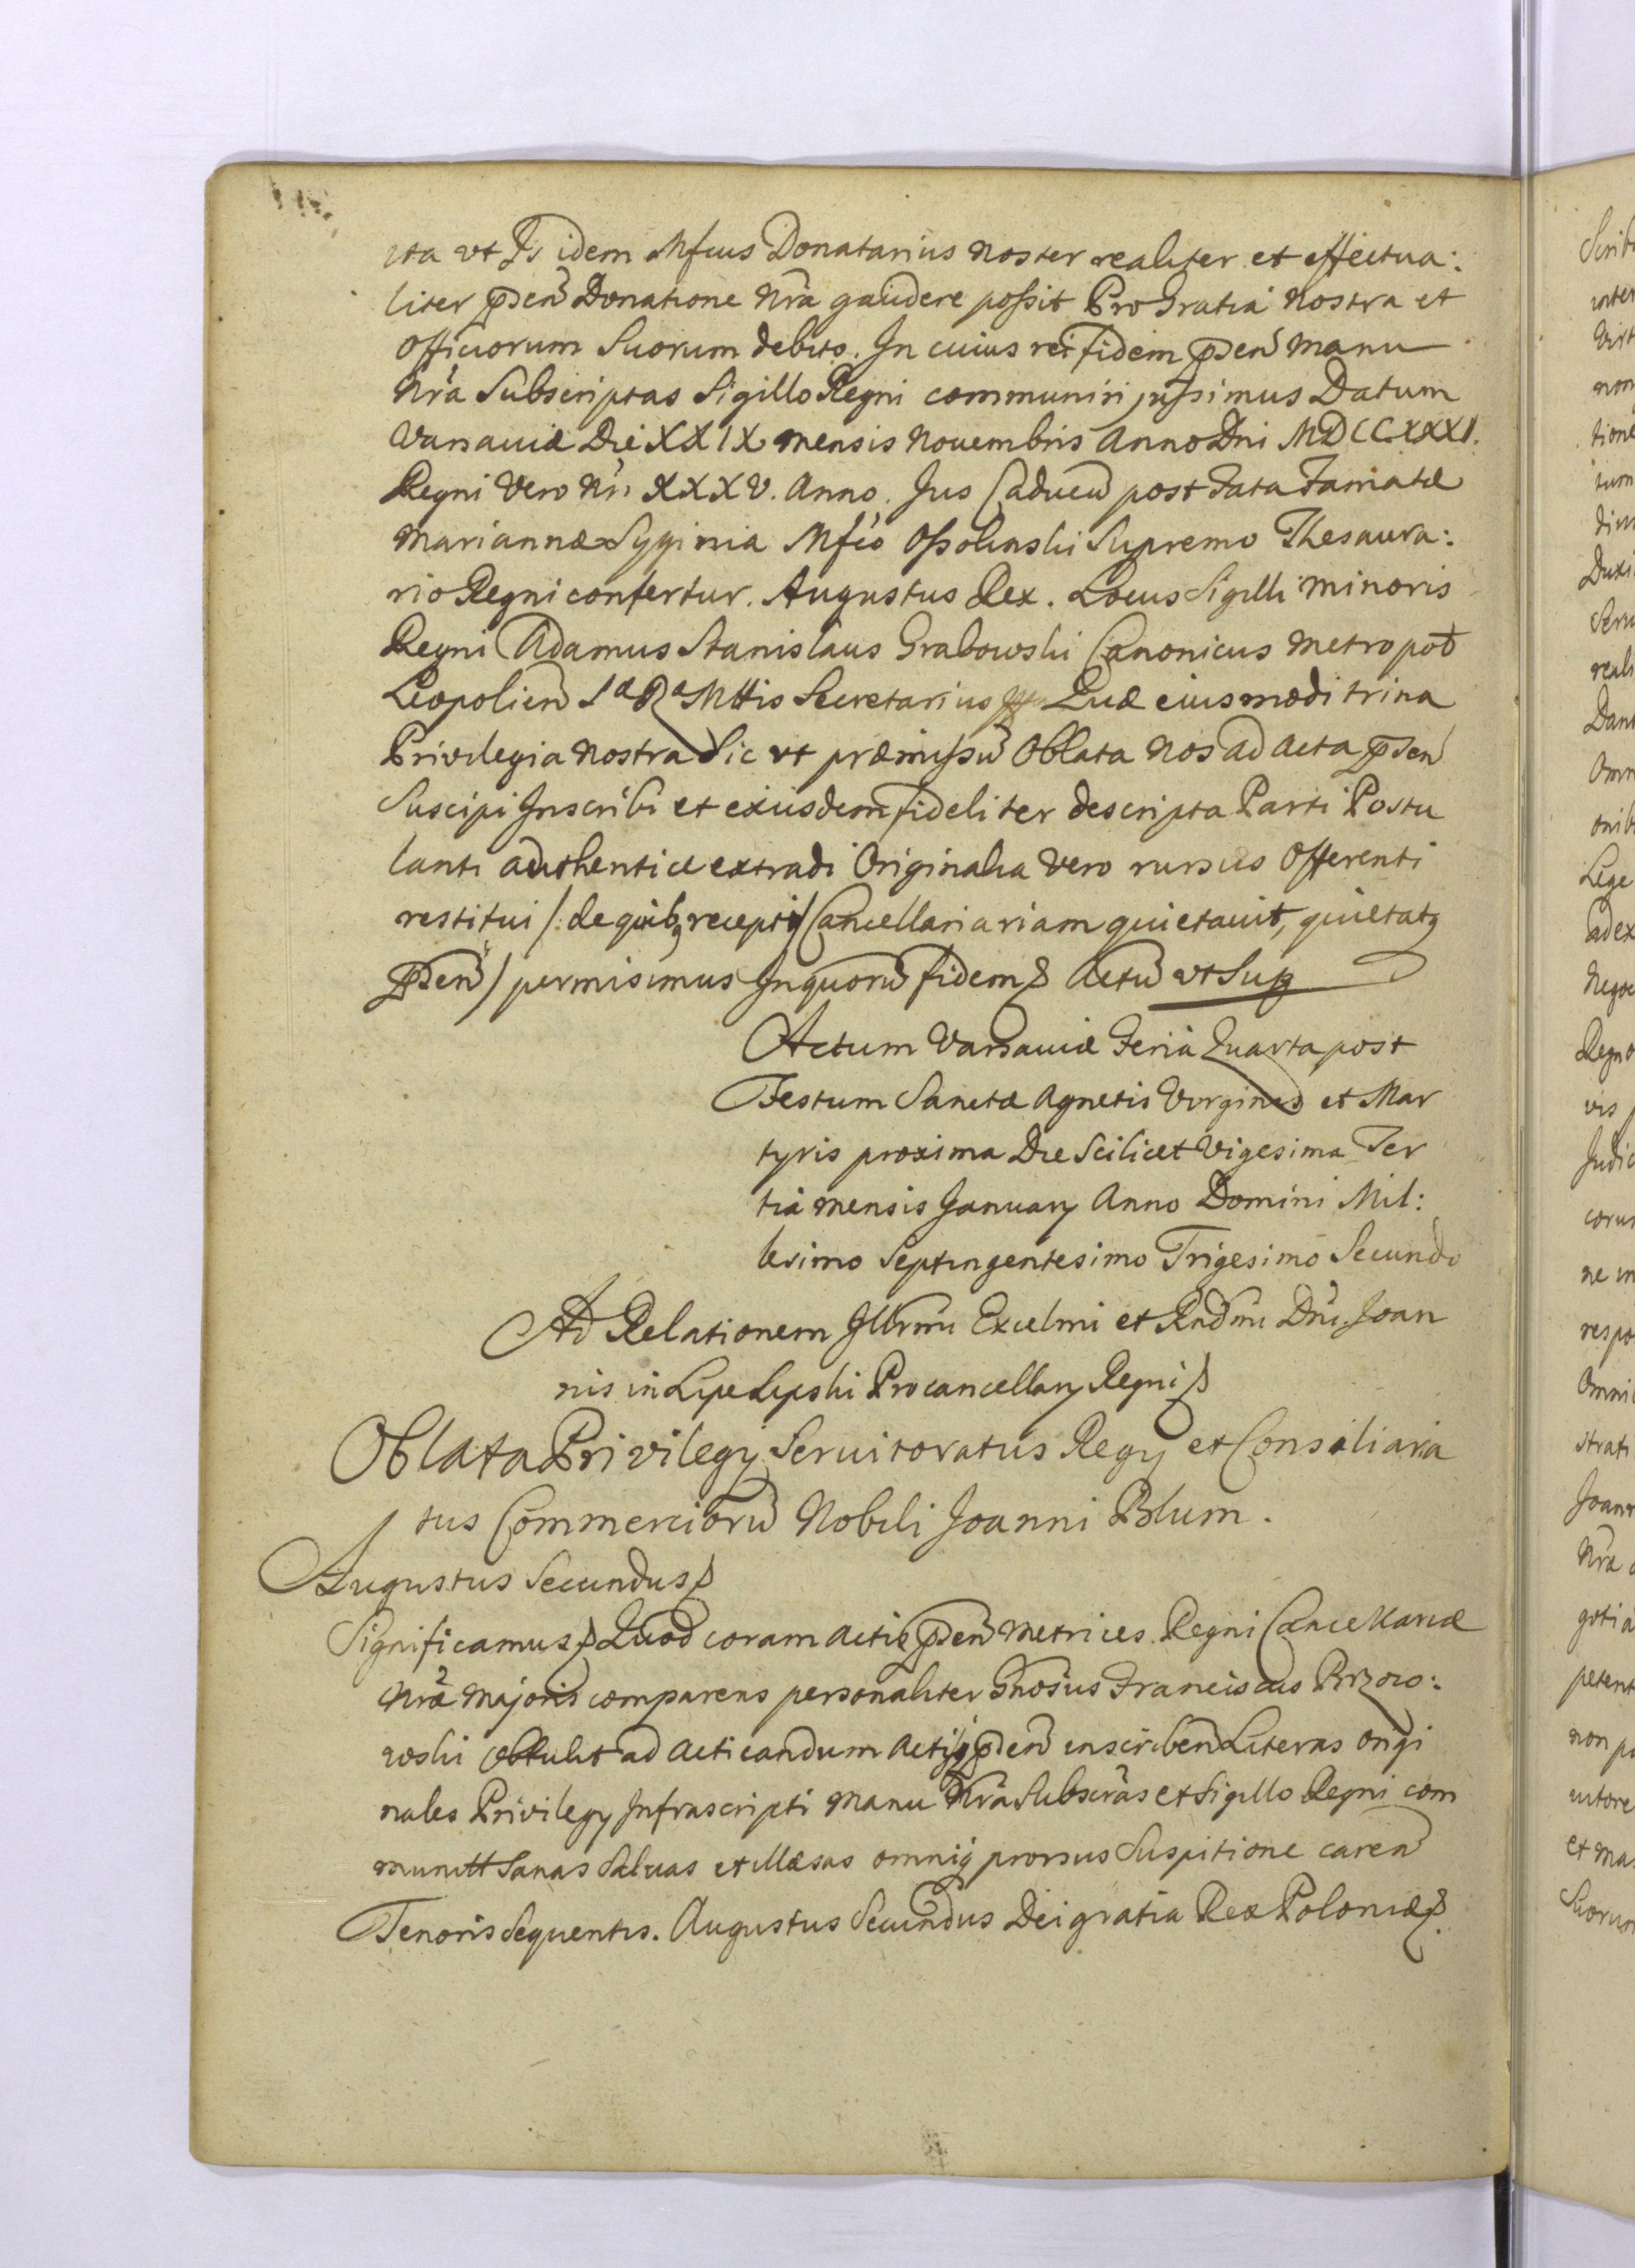 ita vt Is idem Mfcus Donatarius noster realiter et effectua:
liter p̄sen̄ Donatione Nr̃a gaudere poſsit Pro Gratia nostra et
Officiorum Suorum debito. In cuius rei fidem p̄sen̄ manu
Nr̃a Subscriptas Sigillo Regni communiri juſsimus Datum
Varsauiæ Die XXIX mensis Nouembris Anno Dni MDCCXXXI.
Regni Vero Nr̃i XXXV. Anno. Jus Caducū post Fata Famatæ
Mariannæ Mfćo Oſsolinski Supremo Thesaura:
rio Regni confertur. Augustus Rex. Locus Sigilli minoris
Regni Adamus Stanislaus Grabowski Canonicus Metropoł
Leopolien̄ Sæ Ræ Mttis Secretarius Quæ eiusmodi trina
Privilegia nostra Sic vt præmiſsū Oblata Nos ad Acta p̄sen̄
Suscipi Inscribi et exiisdem fideliter descripta Parti Postu
lanti authenticè extradi Originalia Vero rursus Offerenti
restitui /: de quibꝫ receptis Cancellariariam quietauit, quietatqꝫ
p̄sen̄ / permisimus Inquorū fidem Actū vt Sup
Actum Varsauiæ Feria Quarta post
Festum Sanctæ Agnetis Virginis et Mar
tyris proxima Die Scilicet Vigesima Ter
tia mensis January Anno Domini Mil:
lesimo Septingentesimo Trigesimo Secundo
Ad Relationem Illr̃mi Excelmi et Rndmi Dñi Joan
nis in Lipe Lipski Procancellary Regni
Oblata Privilegy Seruitoratus Regy et Consiliaria
tus Commerciorū Nobili Joanni Blum.
Augustus Secundus
Significamus Quod coram Actis p̄sen̄ Metrices Regni Cancellariæ
Nr̃æ Majoris comparens personaliter Gnosus Franciscus Brzozo:
wski obtulit ad Acticandum Actisq p̄sen̄ inscriben̄ Literas origi
nales Privilegy Infrascripti manu Nr̃a Subscr̃as et Sigillo Regni com
munitt Sanas Saluas et illæsas omniq prorsus Suspitione caren̄
Tenoris Sequentis. Augustus Secundus Dei gratia Rex Poloniæ